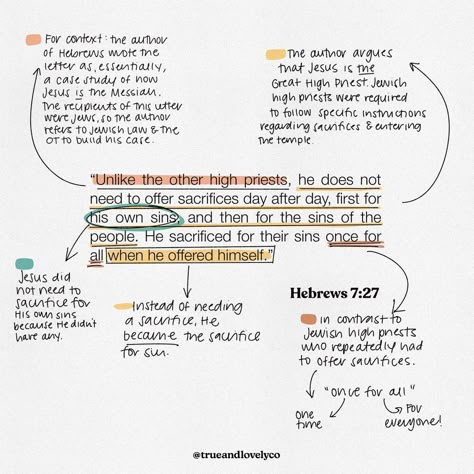 For context: the author
of Hebrews wrote the
letter as, essentially,
a case study of how
Jesus is the Messiah.
The recipients of this letter
were Jews, so the author
refers to Jewish law & the
OT to build his case.
The author argues
that Jesus is the
Great High Priest. Jewish
high priests were required
to follow specific instructions
regarding sacrifices & entering
the temple.
“Unlike the other high priests, he does not
need to offer sacrifices day after day, first for
his own sins, and then for the sins of the
people. He sacrificed for their sins once for
all when he offered himself.”
Hebrews 7:27
Jesus did
not need to
sacrifice for
His own sins
because He didn't
have any.
Instead of needing
a sacrifice, He
became the sacrifice
for sin.
in contrast to
Jewish high priests
who repeatedly had
to offer sacrifices.
"once for all"
one
time
For
everyone!
@trueandlovelyco